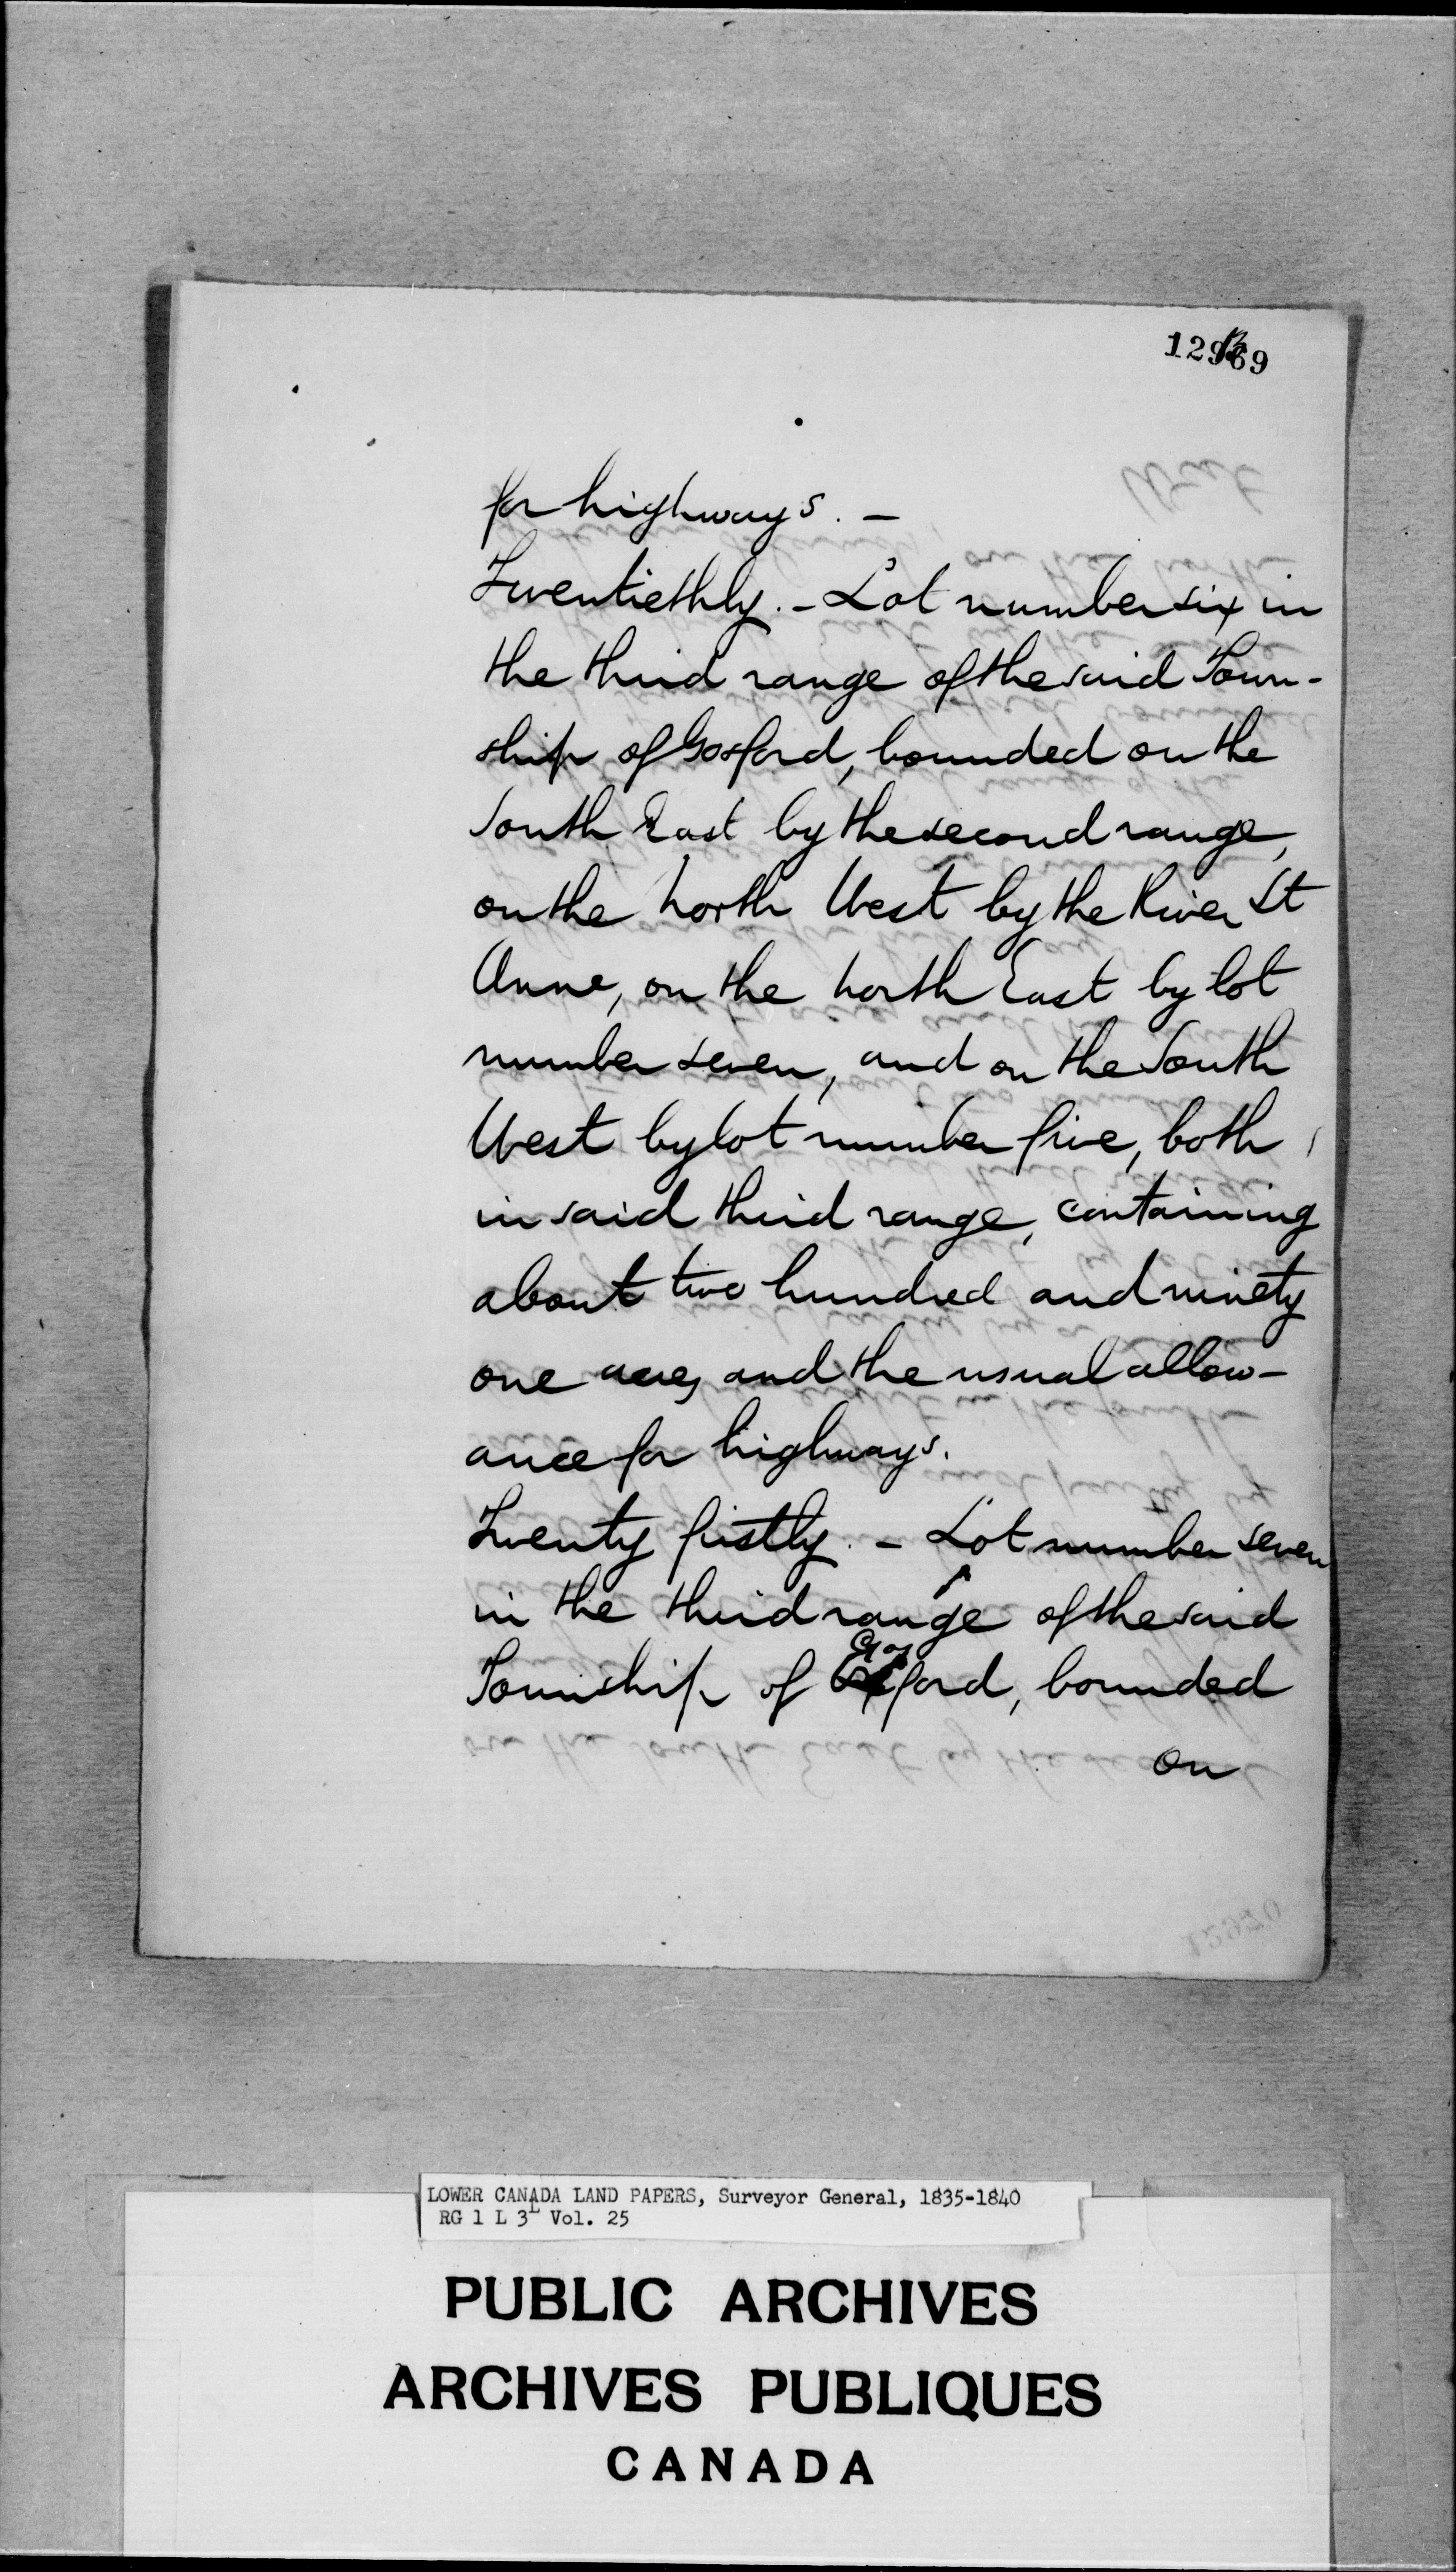 12969
for highways. -
Twentiethly. - Lot number six in
the third range of the said Town-
ship of Gosford, bounded on the
South East by the second range,
on the North West by the River St
Anne, on the North East by lot
number seven, and on the South
West by lot number five, both
in said third range, containing
about two hundred and ninety
one acres, and the usual allow-
ance for highways.
Twenty firstly. - Lot number seven
in the third range of the said
Township of Gosford, bounded
on
LOWER CANADA LAND PAPERS, Surveyor General, 1835-1840
RG 1 L 3L Vol. 25
PUBLIC ARCHIVES
ARCHIVES PUBLIQUES
CANADA